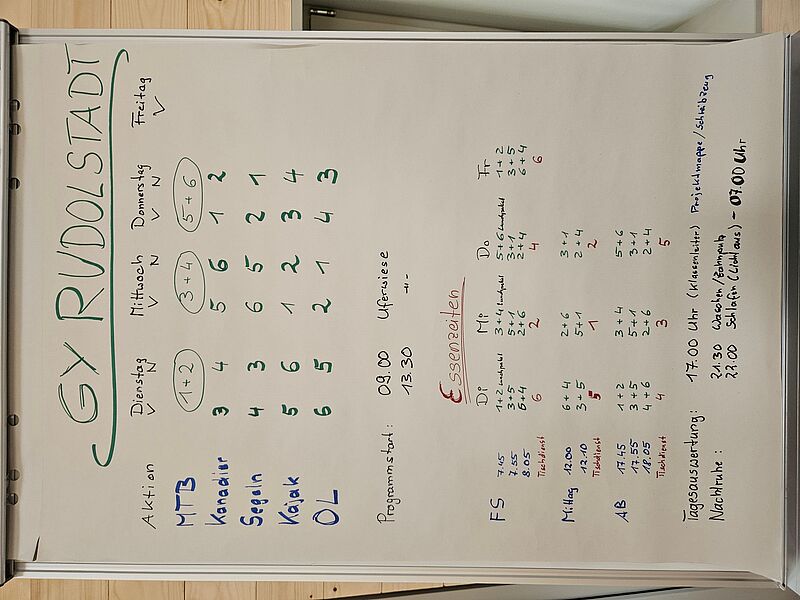 GY RUDOLSTADT
Aktion Dienstag Mittwoch Donnerstag Freitag
V N V N V N V
MTB 1+2 3+4 5+6
Kanadier 3 4 5 6 1 2
Segeln 4 3 6 5 2 1
Kajak 5 6 1 2 3 4
OL 6 5 2 1 4 3
Programmstart: 09.00 Uferwiese
13.30 -"-
Essenzeiten
Di Mi Do Fr
FS 7.45 1+2 Lunchpaket 3+4 Lunchpaket 5+6 Lunchpaket 1+2
7.55 3+5 5+1 3+1 3+5
8.05 6+4 2+6 2+4 6+4
Tischdienst 6 2 4 6
Mittag 12.00 6+4 2+6 3+1
12.10 3+5 5+1 2+4
Tischdienst 5 1 2
AB 17.45 1+2 3+4 5+6
17.55 3+5 5+1 3+1
18.05 4+6 2+6 2+4
Tischdienst 4 3 5
Tagesauswertung: 17.00 Uhr (Klassenleiter) Projektmappe/Schreibzeug
Nachtruhe: 21.30 Waschen/Zahnputz
22.00 Schlafen (Licht aus) - 07.00 Uhr